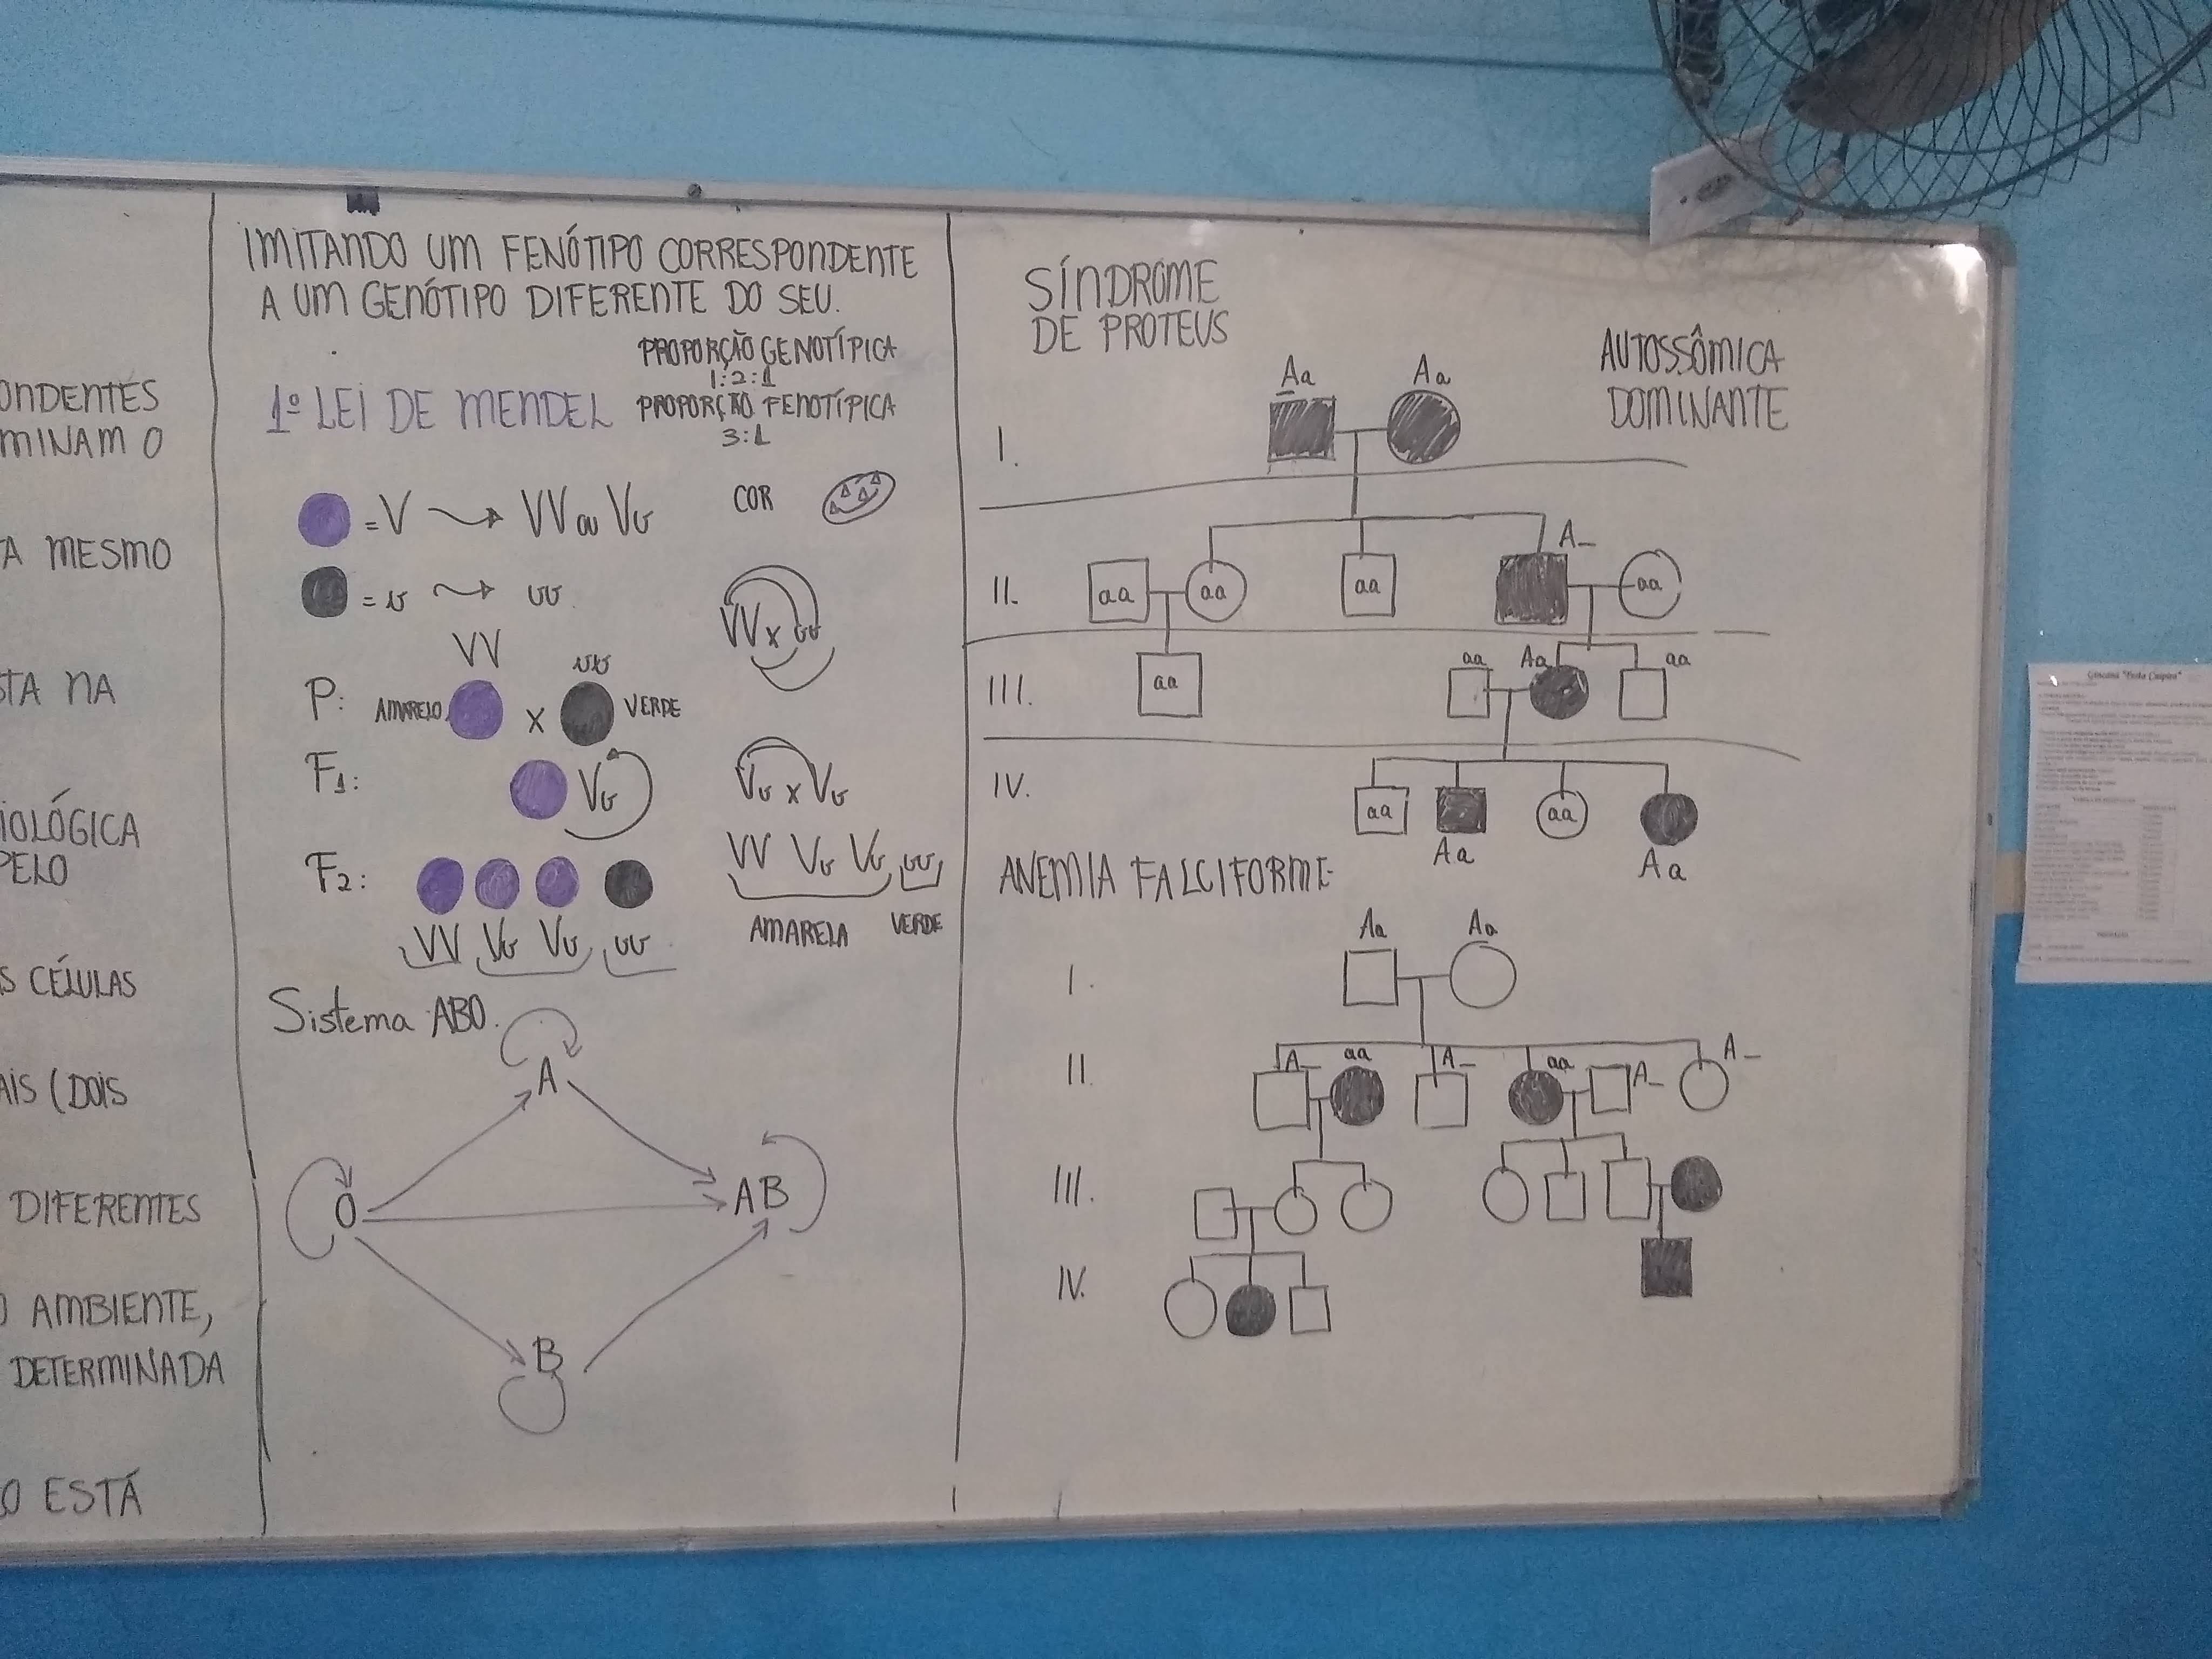 ONDENTES
MINAM O
A MESMO
STA NA
IOLÓGICA
PELO
S CÉLULAS
AIS (DOIS
DIFERENTES
O AMBIENTE,
DETERMINADA
O ESTÁ
IMITANDO UM FENÓTIPO CORRESPONDENTE
A UM GENÓTIPO DIFERENTE DO SEU.
PROPORÇÃO GENOTÍPICA
1:2:1
1º LEI DE MENDEL
PROPORÇÃO FENOTÍPICA
3:1
= V → VV ou Vv
COR
= v → vv
VV x vv
VV vv
P: AMARELO x VERDE
F1: Vv
Vv x Vv
VV Vv Vv vv
F2:
AMARELA VERDE
VV Vv Vv vv
Sistema ABO.
A
O AB
B
SÍNDROME
DE PROTEUS
AUTOSSÔMICA
DOMINANTE
Aa Aa
I.
A_
II. aa aa aa aa
aa Aa aa
III. aa
IV. aa aa
Aa Aa
ANEMIA FALCIFORME
Aa Aa
I.
II A_ aa A_ aa A_ A_
III.
IV.
Gincana "Festa Caipira"